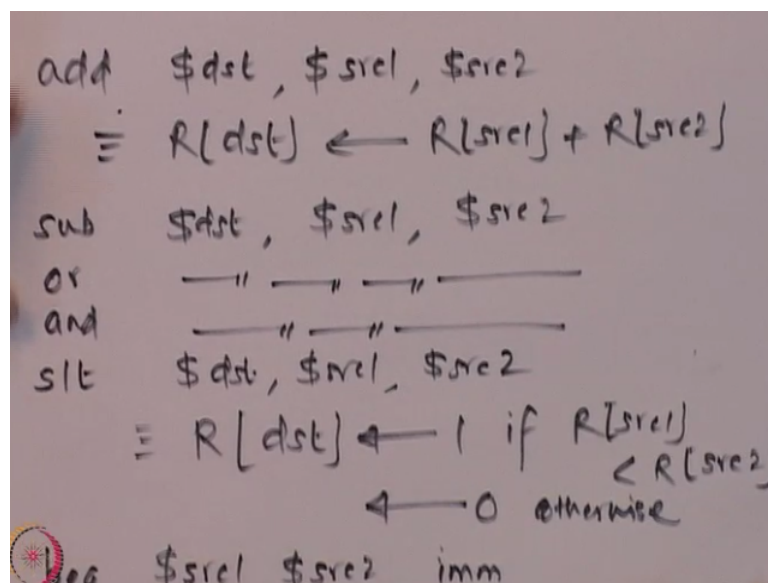 add $dst, $src1, $src2
≡ R[dst] ← R[src1] + R[src2]
sub $dst, $src1, $src2
or —〃 —〃 —〃 —
and —〃 —〃 —
slt $dst, $src1, $src2
≡ R[dst] ← 1 if R[src1]
< R[src2]
← 0 otherwise
beq $src1 $src2 imm